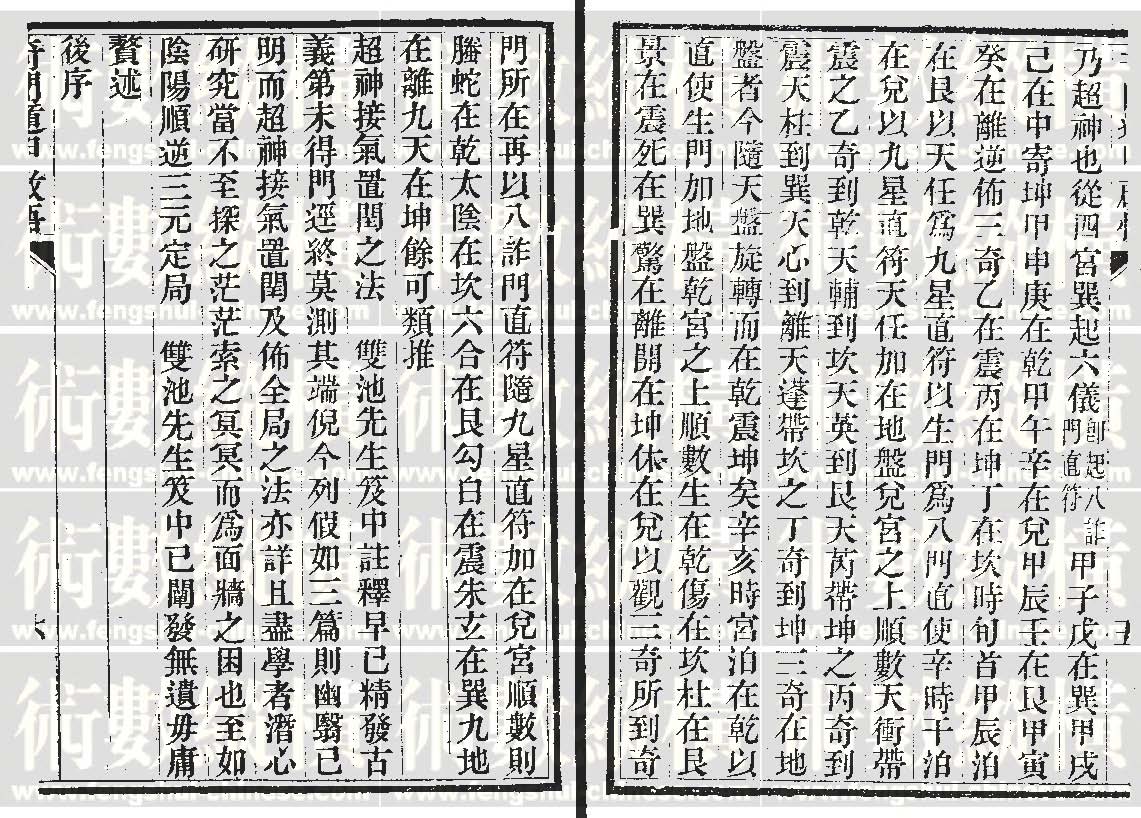 乃超神也從四宮巽起六儀卽起八詐門直符甲子戊在巽甲戌
己在中寄坤甲申庚在乾甲午辛在兌甲辰壬在艮甲寅
癸在離逆佈三奇乙在震丙在坤丁在坎時旬首甲辰泊
在艮以天任爲九星直符以生門爲八門直使辛時干泊
在兌以九星直符天任加在地盤兌宮之上順數天衝帶
震之乙奇到乾天輔到坎天英到艮天芮帶坤之丙奇到
震天柱到巽天心到離天蓬帶坎之丁奇到坤三奇在地
盤者今隨天盤旋轉而在乾震坤矣辛亥時宮泊在乾以
直使生門加地盤乾宮之上順數生在乾傷在坎杜在艮
景在震死在巽驚在離開在坤休在兌以觀三奇所到奇
五
門所在再以八詐門直符隨九星直符加在兌宮順數則
螣蛇在乾太陰在坎六合在艮勾白在震朱玄在巽九地
在離九天在坤餘可類推
超神接氣置閏之法 雙池先生笈中註釋早已精發古
義第未得門逕終莫測其端倪今列假如三篇則幽翳已
明而超神接氣置閏及佈全局之法亦詳且盡學者潛心
研究當不至探之茫茫索之冥冥而爲面牆之困也至如
陰陽順逆三元定局 雙池先生笈中已闡發無遺毋庸
贅述
後序
六
www.fengshui-chinese.com